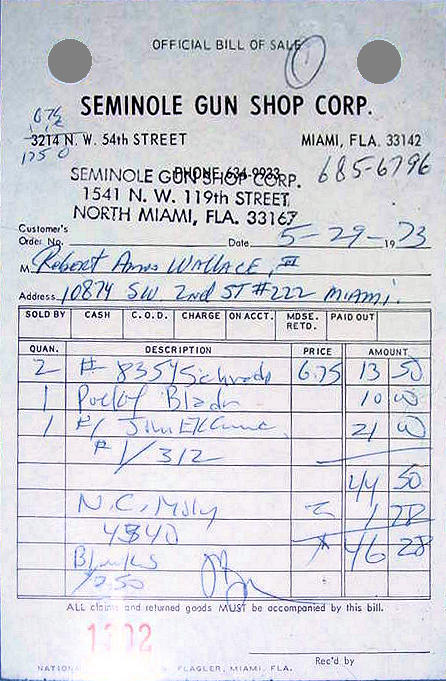 OFFICIAL BILL OF SALE
1
SEMINOLE GUN SHOP CORP.
3214 N. W. 54th STREET MIAMI, FLA. 33142
1750
PHONE 634-9933 685-6796
SEMINOLE GUN SHOP CORP.
1541 N. W. 119th STREET
NORTH MIAMI, FLA. 33167
Customer's
Order No. Date 5-29-1973
M Robert WALLACE, III
Address 10874 SW. 2nd ST #222 MIAMI.
SOLD BY CASH C.O.D. CHARGE ON ACCT. MDSE. RETD. PAID OUT
QUAN. DESCRIPTION PRICE AMOUNT
2 # 8354 Schrade 6.75 13 50
1 10 00
1 #1 21 00
#1/312
44 50
N.C. 1 78
46 28
ALL claims and returned goods MUST be accompanied by this bill.
1302
Rec'd by
FLAGLER, MIAMI, FLA.